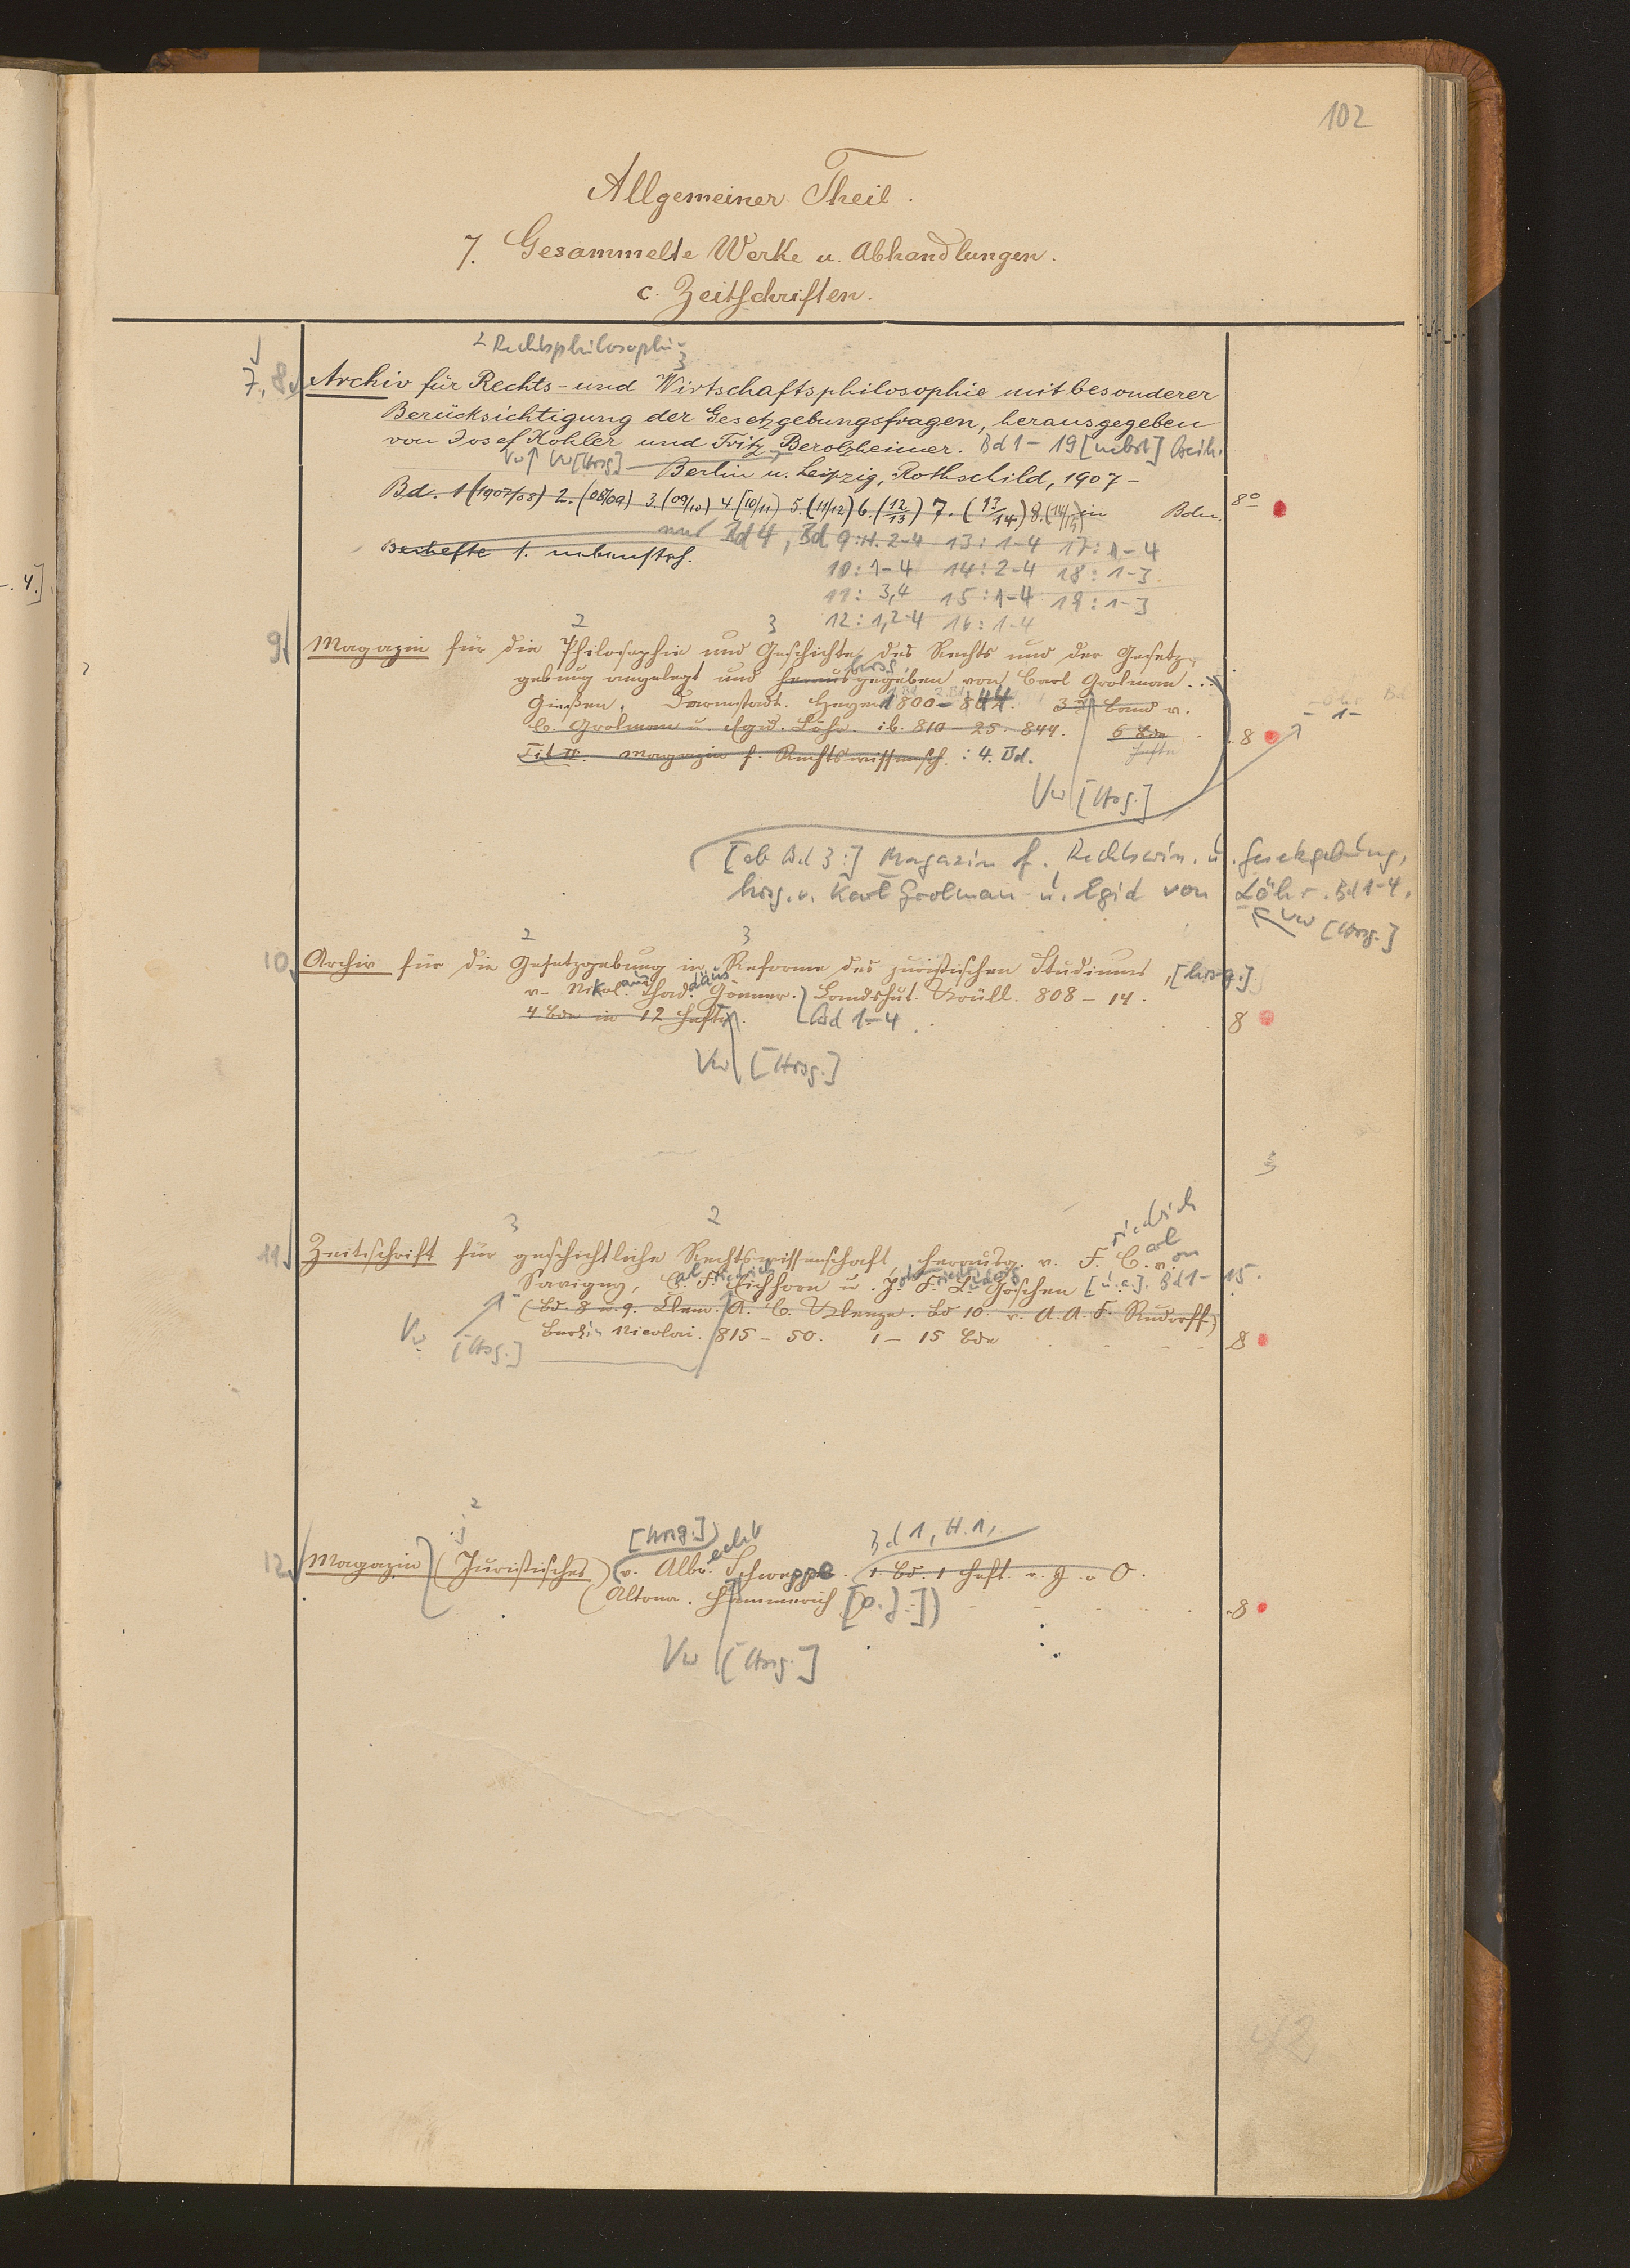 102
Allgemeiner Theil.
7. Gesammelte Werke u. Abhandlungen.
c. Zeitschriften.
2 Rechtsphilosophie
3
7, 8. Archiv für Rechts- und Wirtschaftsphilosophie mit besonderer
Berücksichtigung der Gesetzgebungsfragen, herausgegeben
von Josef Kohler und Fritz Berolzheimer. Bd 1 - 19 [nebst] Beih.
Vw Vw [Hrsg.] Berlin u. Leipzig, Rothschild, 1907 -
Bd. 1 (1907/08) 2. (08/09) 3. (09/10) 4. [10/11) 5. (11/12) 6. (12/13) 7. (13/14) 8. (14/15) in Bdn. 8º
nur Bd 4, Bd 9: H. 2-4 13: 1-4 17: 1-4
Beihefte 1.
10: 1-4 14: 2-4 18: 1-3
11: 3,4 15: 1-4 19: 1-3
12: 1,2-4 16: 1-4
-. 4.]
2 3
9 Magazin für die Philosophie und Geschichte des Rechts und der Gesetz-
gebung angelegt und herausgegeben von Carl Grolman...
hrsg.
Gießen. Darmstadt. Heyer 1800 - 844. 3 Band v.
C. Grolman u. Egid. Löhr. ib. 810 - 25. 844. 6 Bde 8
Hefte
Tit II. Magazin f. Rechtswissensch. : 4. Bd.
- 1-
Vw [Hrsg.]
[ab Bd 3:] Magazin f. Rechtswiss. u. Gesetzgebung,
hrsg. v. Karl Grolman u. Egid von Löhr. Bd 1-4.
Vw [Hrsg.]
2 3
10. Archiv für die Gesetzgebung u. Reforme des juristischen Studiums, [hrsg.]
v. Nikol. Thad. Gönner. Landshut. Krüll. 808 - 14.
aus däus
4 Bde in 12 Heften. Bd 1-4. 8
Vw [Hrsg.]
3 2
riedrich
11. Zeitschrift für geschichtliche Rechtswissenschaft, herausg. v. F. C. v.
arl on
Savigny, C. F. Eichhorn u. J. F. L. Göschen [u. a.]. Bd 1 - 15.
(Bd. 8 u. 9. Klem. A. C. Klenze. Bd 10. v. A. A. F. Rudorff)
Berlin Nicolai. 815 - 50. 1 - 15 Bde 8
Vw [Hrsg.]
2
[hrsg.] echt Bd 1, H. 1,
12. Magazin (Juristisches) v. Albr. Schweppe. 1. Bd. 1 Heft.
(Altona. Hammerich [o. J.]) 8
Vw [Hrsg.]
42